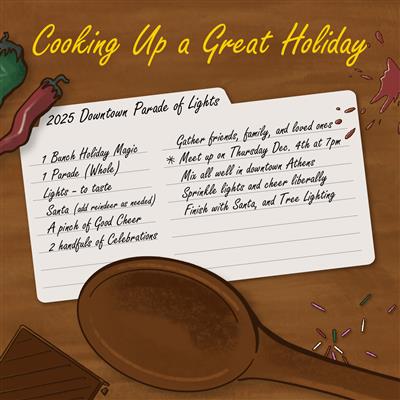 Cooking Up a Great Holiday
2025 Downtown Parade of Lights
1 Bunch Holiday Magic
1 Parade (Whole)
Lights - to taste
Santa (add reindeer as needed)
A pinch of Good Cheer
2 handfuls of Celebrations
Gather friends, family, and loved ones
* Meet up on Thursday Dec. 4th at 7pm
Mix all well in downtown Athens
Sprinkle lights and cheer liberally
Finish with Santa, and Tree Lighting